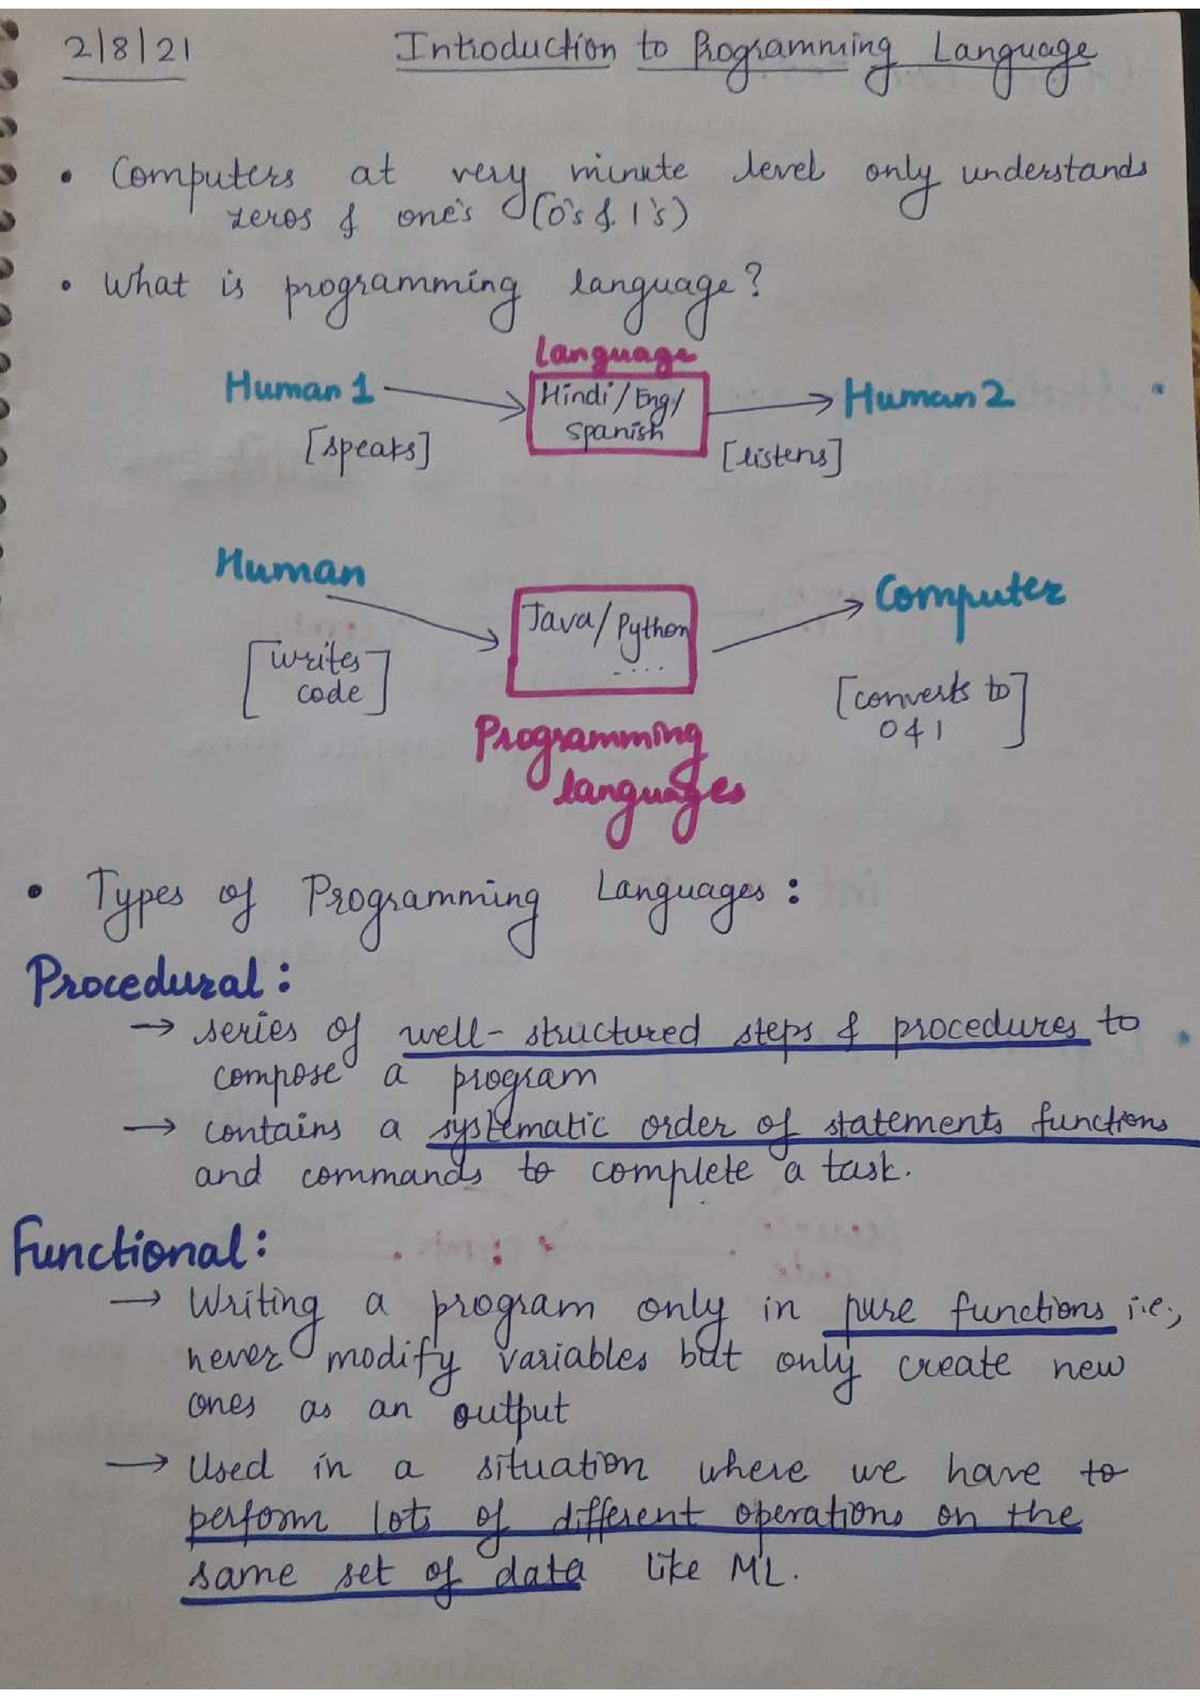 2/8/21 Introduction to Programming Language
• Computers at very minute level only understands
zeros & one's (0's & 1's)
• What is programming language?
Language
Human 1 Hindi/Eng/ Human 2
Spanish
[speaks] [listens]
Human Computer
Java/Python
....
[writes
code] [converts to
0 & 1]
Programming
languages
• Types of Programming Languages:
Procedural:
→ series of well-structured steps & procedures to
compose a program
→ contains a systematic order of statements functions
and commands to complete a task.
Functional:
→ Writing a program only in pure functions i.e.,
never modify variables but only create new
ones as an output
→ Used in a situation where we have to
perform lots of different operations on the
same set of data like ML.